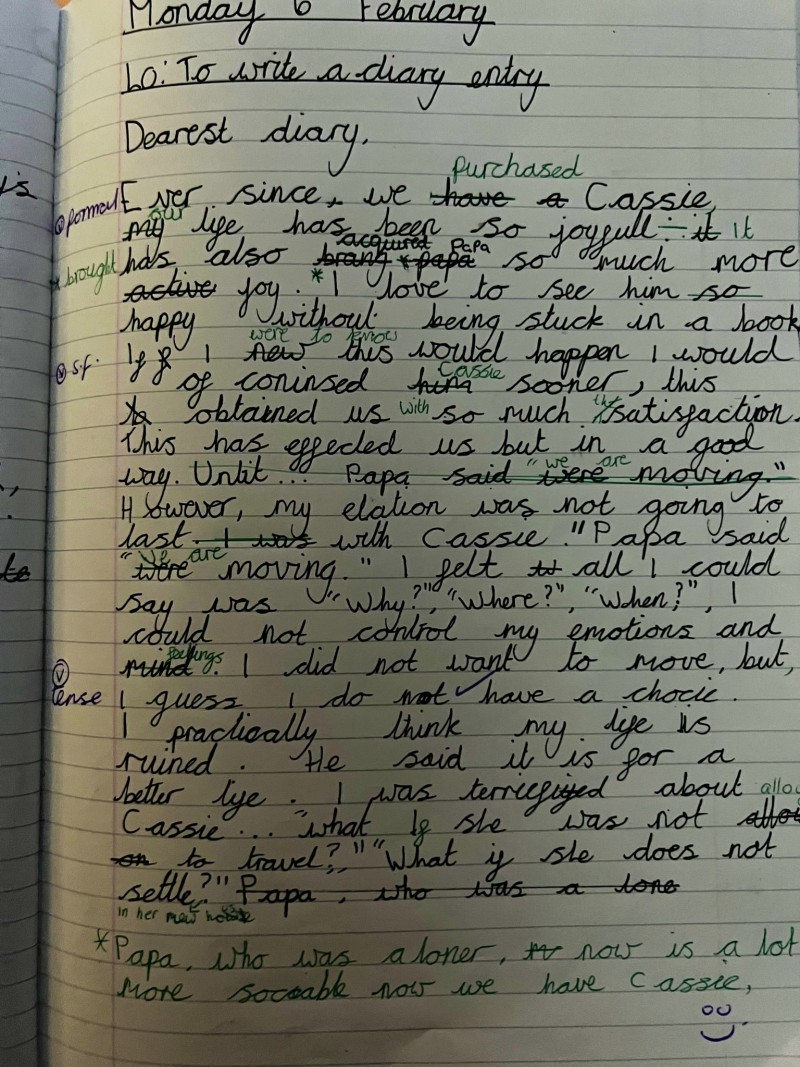 Monday 6 February
LO: To write a diary entry
Dearest diary,
purchased
Ever since, we have a Cassie,
formal
our
my life has been so joyfull. it It
acquired Papa
has also brang papa so much more
* brought
active joy. * I love to see him so
happy without being stuck in a book
were to know
If I new this would happen I would
s.f.
Cassie
of coninsed him sooner, this
obtained us with so much satisfaction.
This has effected us but in a good
we are
way. Until... Papa said "were moving."
However, my elation was not going to
last. I was with Cassie." Papa said
we are
"were moving." I felt all I could
say was "Why?", "Where?", "When?", I
could not control my emotions and
feelings
mind. I did not want to move, but,
tense
I guess I do not have a chocie.
I practically think my life is
ruined. He said it is for a
better life. I was terrified about
Cassie... "what If she was not
to travel?," "What if she does not
settle?" Papa, who was a lone
in her new
* Papa, who was a loner, now is a lot
More socable now we have Cassie,
's